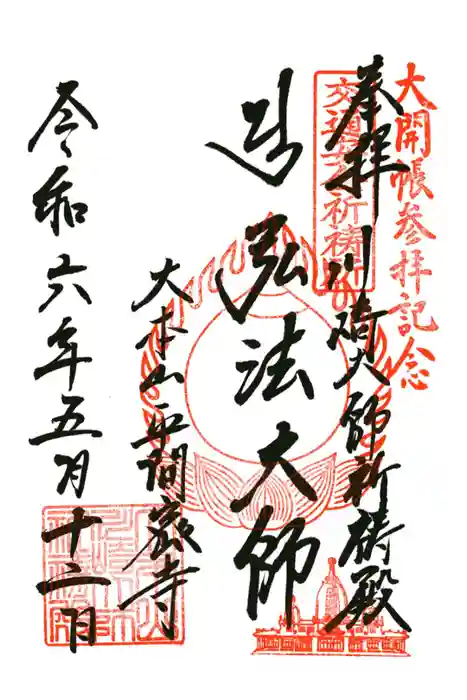 大開帳参拝記念
交通安全祈祷所
奉拝 川崎大師祈祷殿
遍弘法大師
大本山平間寺
令和六年五月十二日